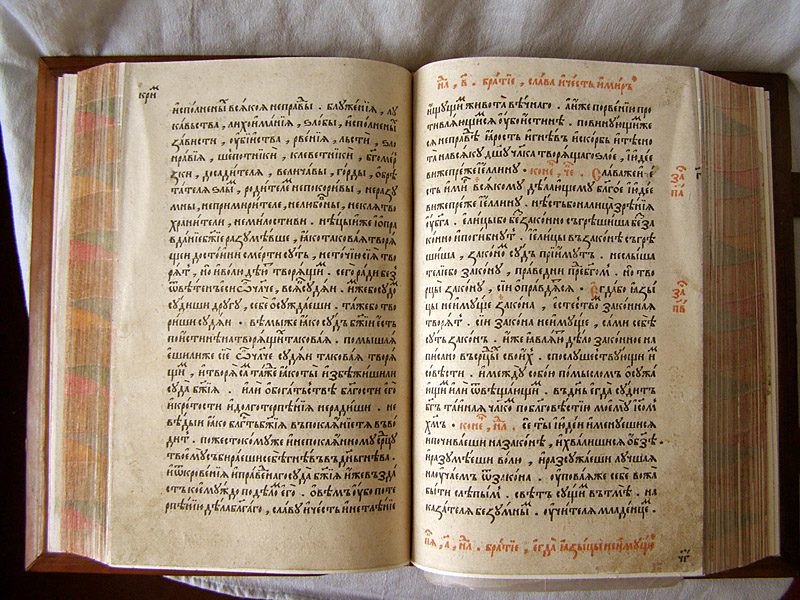 исполнены̀ всѧкоѧ непра́вⷣы . блꙋже́нїѧ , лꙋ
ка́вьства , лихоима́нїѧ , ѕло́бы , исполнены̀
за́висти , ᲂубі́йства , рве́нїѧ , льсти , ѕло
нра́вїѧ , шепотникѝ , клеветникѝ , бг҃оме́р
ски , досади́телѧ , велича́вы , го́рды , обрѣ
та́телѧ ѕлы̀ , роди́телѐ непокори́вы , неразꙋ
мны , непримири́телѐ , нелюбо́вны , неклѧ́тво
храни́тели , неми́лостивы . нѣ́цыи же иопра
вда́нїе бж҃їе разꙋмѣ́вше , ꙗко такова́ѧ творѧ́
щеи досто́йни сме́рти сꙋ́ть , нето́чїю сїѧ̀ тво
рѧ́тъ , но и во́лю дѣ́ютъ творѧ́щимъ . сегѡ̀ ра́ди без̾
ѿвѣ́тенъ есѝ ѿ чл҃че , всѧ́къ сꙋдѧ́и . и́мже бо сꙋ́
дꙋ сꙋ́диши дрꙋ́гꙋ , себѐ осꙋжда́еши . та́ѧже бо тво
ри́ши сꙋдѧ́и . вѣ́мы же ꙗко сꙋ́дъ бж҃їи е́сть
пои́стинѣ натворѧ́щихъ такова́ѧ . помышлѧ́
еши ли же сїѐ ѿ чл҃че сꙋдѧ́и такова́ѧ творѧ́
щимъ , и творѧ̀ са́мъ та́ѧже , ꙗко ты̀ избѣжи́ши ли
сꙋда̀ бж҃їѧ . илѝ обога́тьствѣ бл҃гости егѡ̀
и кро́тости и долготерпѣ́нїи неради́ши . не
вѣ́дыи ꙗко бл҃гть бж҃їѧ въпокаѧ́нїе тѧ̀ въво́
дитъ . пожесто́комꙋ же инепокаѧ́нномꙋ ср҃цꙋ
твоемꙋ̀ събира́еши себѣ̀ гнѣ́въ въдн҃ь гнѣ́ва .
и ѿкрове́нїѧ и пра́веднаго сꙋда̀ бж҃їѧ иже възда́
стъ комꙋ́ждо подѣлѡ́мъ егѡ̀ . ѡвѣ́мъ ᲂубо потє
рпѣ́нїю дѣ́ла бл҃га́го , сла́вꙋ ичє́сть инетлѣ́нїе
нл҃ , в҃ . бра́тїе , сла́ва ичє́сть имиръ
и́щꙋщимъ живота̀ вѣ́чнаго . а и́же порве́нїю про
тивлѧ́ющимсѧ ᲂубо и́стинѣ . повинꙋ́ющимже
сѧ непра́вдѣ ꙗрость игнѣ́въ искорбь итѣсно
та̀ навсѧ́кꙋ дш҃ꙋ чл҃ка творѧ́щаго ѕло́е , їюде́ѧ
въпре́жде иє́ллинꙋ . коне́цъ , че . сла́ва же иче́
сть имиръ всѧ́комꙋ дѣ́лающемꙋ бл҃го́е їюде́ѧ
въпре́жде иє́ллинꙋ . нѣ́сть бо налица̀ зрѣ́нїѧ
ᲂу бг҃а . ели́цы бо без̾зако́нно съгрѣши́ша без̾за
ко́нно и поги́бнꙋтъ . и ели́цы въ зако́нѣ съгрѣ
ши́ша , зако́номъ сꙋ́дъ прїи́мꙋтъ . неслы́ша
телїе бо зако́нꙋ , пра́ведни пред̾ бг҃омъ . но тво
рцы̀ зако́нꙋ , сїи оправдѧ́тсѧ . егда́ бо ꙗзы́
цы неимꙋ́ще зако́на , естество́мъ зако́ннаѧ
творѧ́тъ . сїи зако́на неимꙋ́ще , са́ми себѣ̀
сꙋ́ть зако́нъ . и́же ꙗвлѧ́ютъ дѣ́ло зако́нное на
пи́сано въ срдцы́хъ свои́хъ . спослꙋшествꙋ́ющи имъ
со́вѣсти . и междꙋ̀ собо́ю по́мысломъ осꙋжа́
ющимъ илѝ ѿвѣща́ющимъ . въ дн҃ь егда̀ сꙋ́дитъ
бг҃ъ та́йнаѧ чл҃комъ поблаговѣ́стїю моемꙋ̀ їсо́мъ
хм҃ъ . коне́цъ , нл҃ . се ты̀ їюде́и именꙋ́ешисѧ
ипочива́еши назако́нѣ , и хва́лишисѧ обз҃ѣ .
и разꙋмѣ́еши во́лю , и разсꙋжа́еши лꙋ́чшаѧ
наꙋча́емъ ѿзако́на . ᲂупова́ѧ же себѐ вожа̀
бы́ти слѣпы́мъ . свѣ́тъ сꙋ́щимъ въ тмѣ̀ . на
каза́телѧ безꙋ́мнымъ . ᲂучи́телѧ младе́нцемъ .
за҃
па҃
за҃
пв҃
пѧ , а҃ , нл҃ . бра́тїе , егда̀ ꙗзы́цы неимꙋ́ще
чг҃